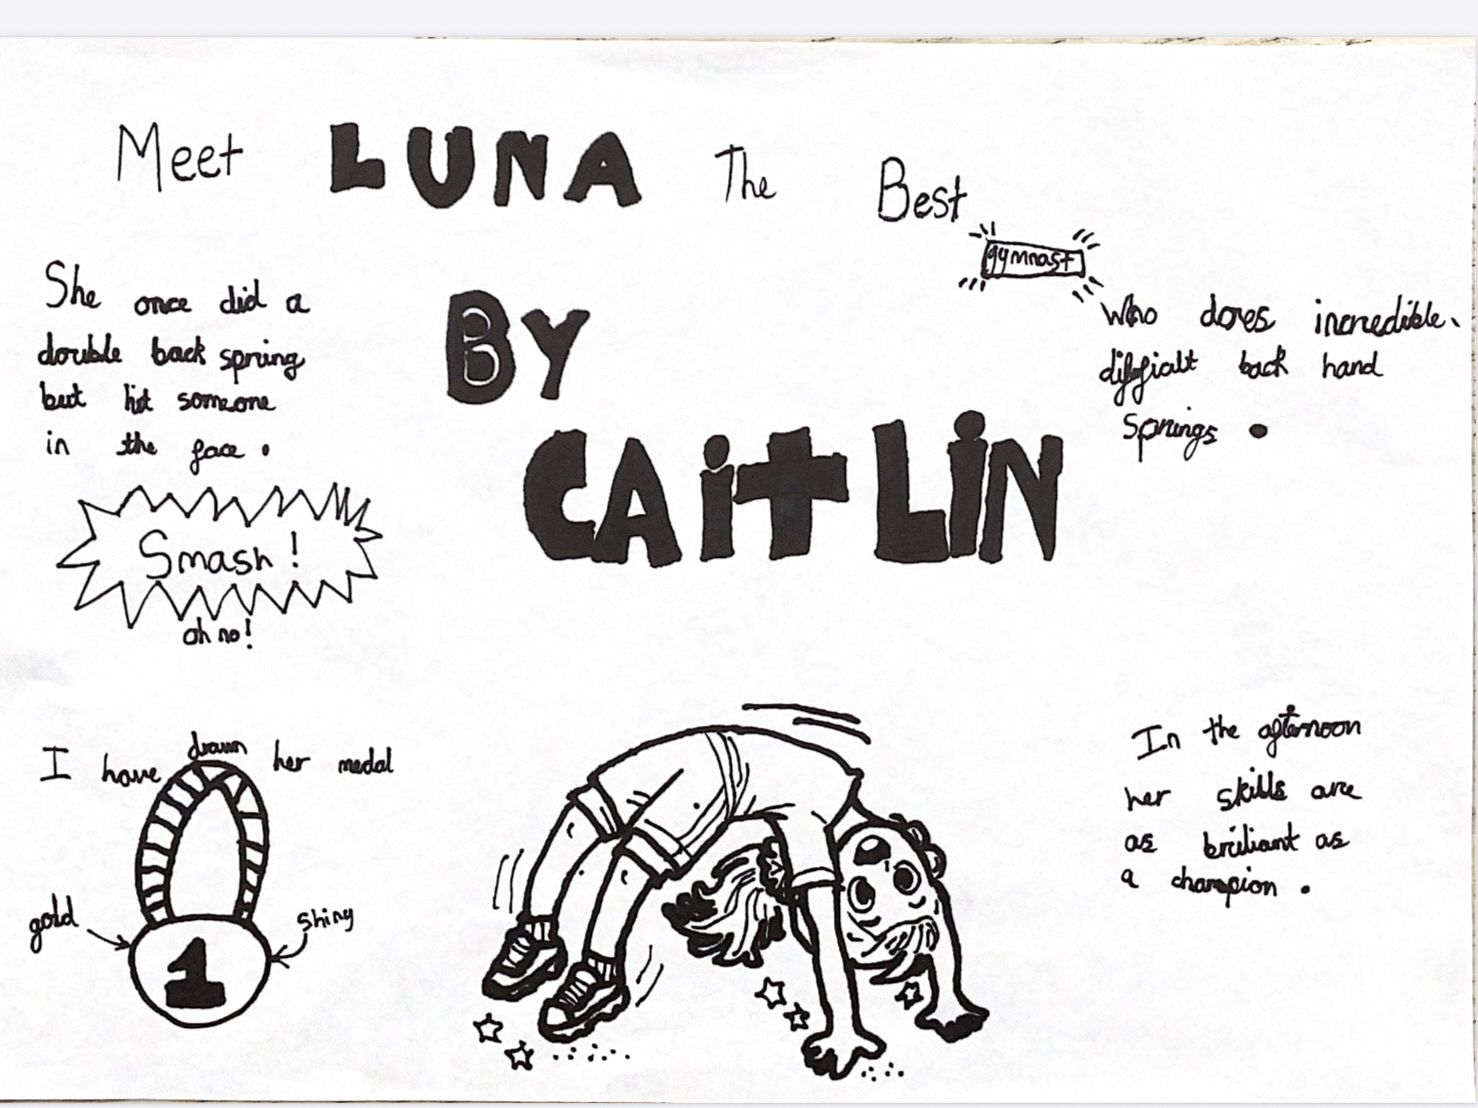 Meet LUNA The Best
gymnast
who does incredible,
diffficalt back hand
Springs.
BY
CAitLiN
She once did a
double back spring
but hit someone
in the face.
Smash!
oh no!
I have drawn her medal
gold
shiny
1
In the afternoon
her skills are
as briliant as
a champion.